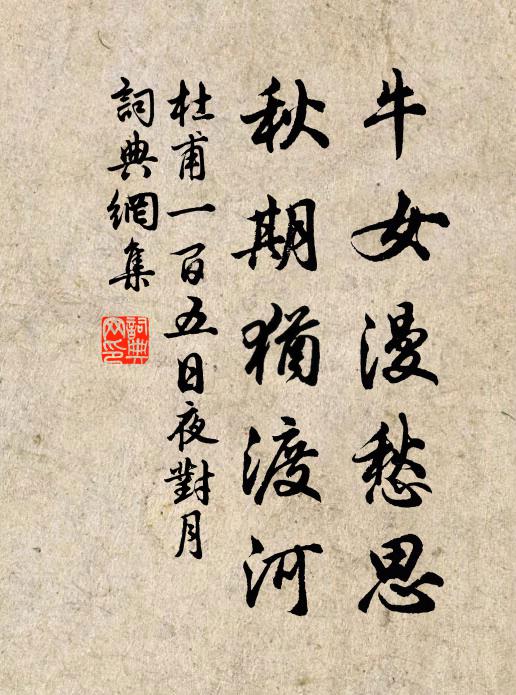 牛女漫愁思
秋期猶渡河
杜甫一百五日夜對月
詞典網集
詞典
网印